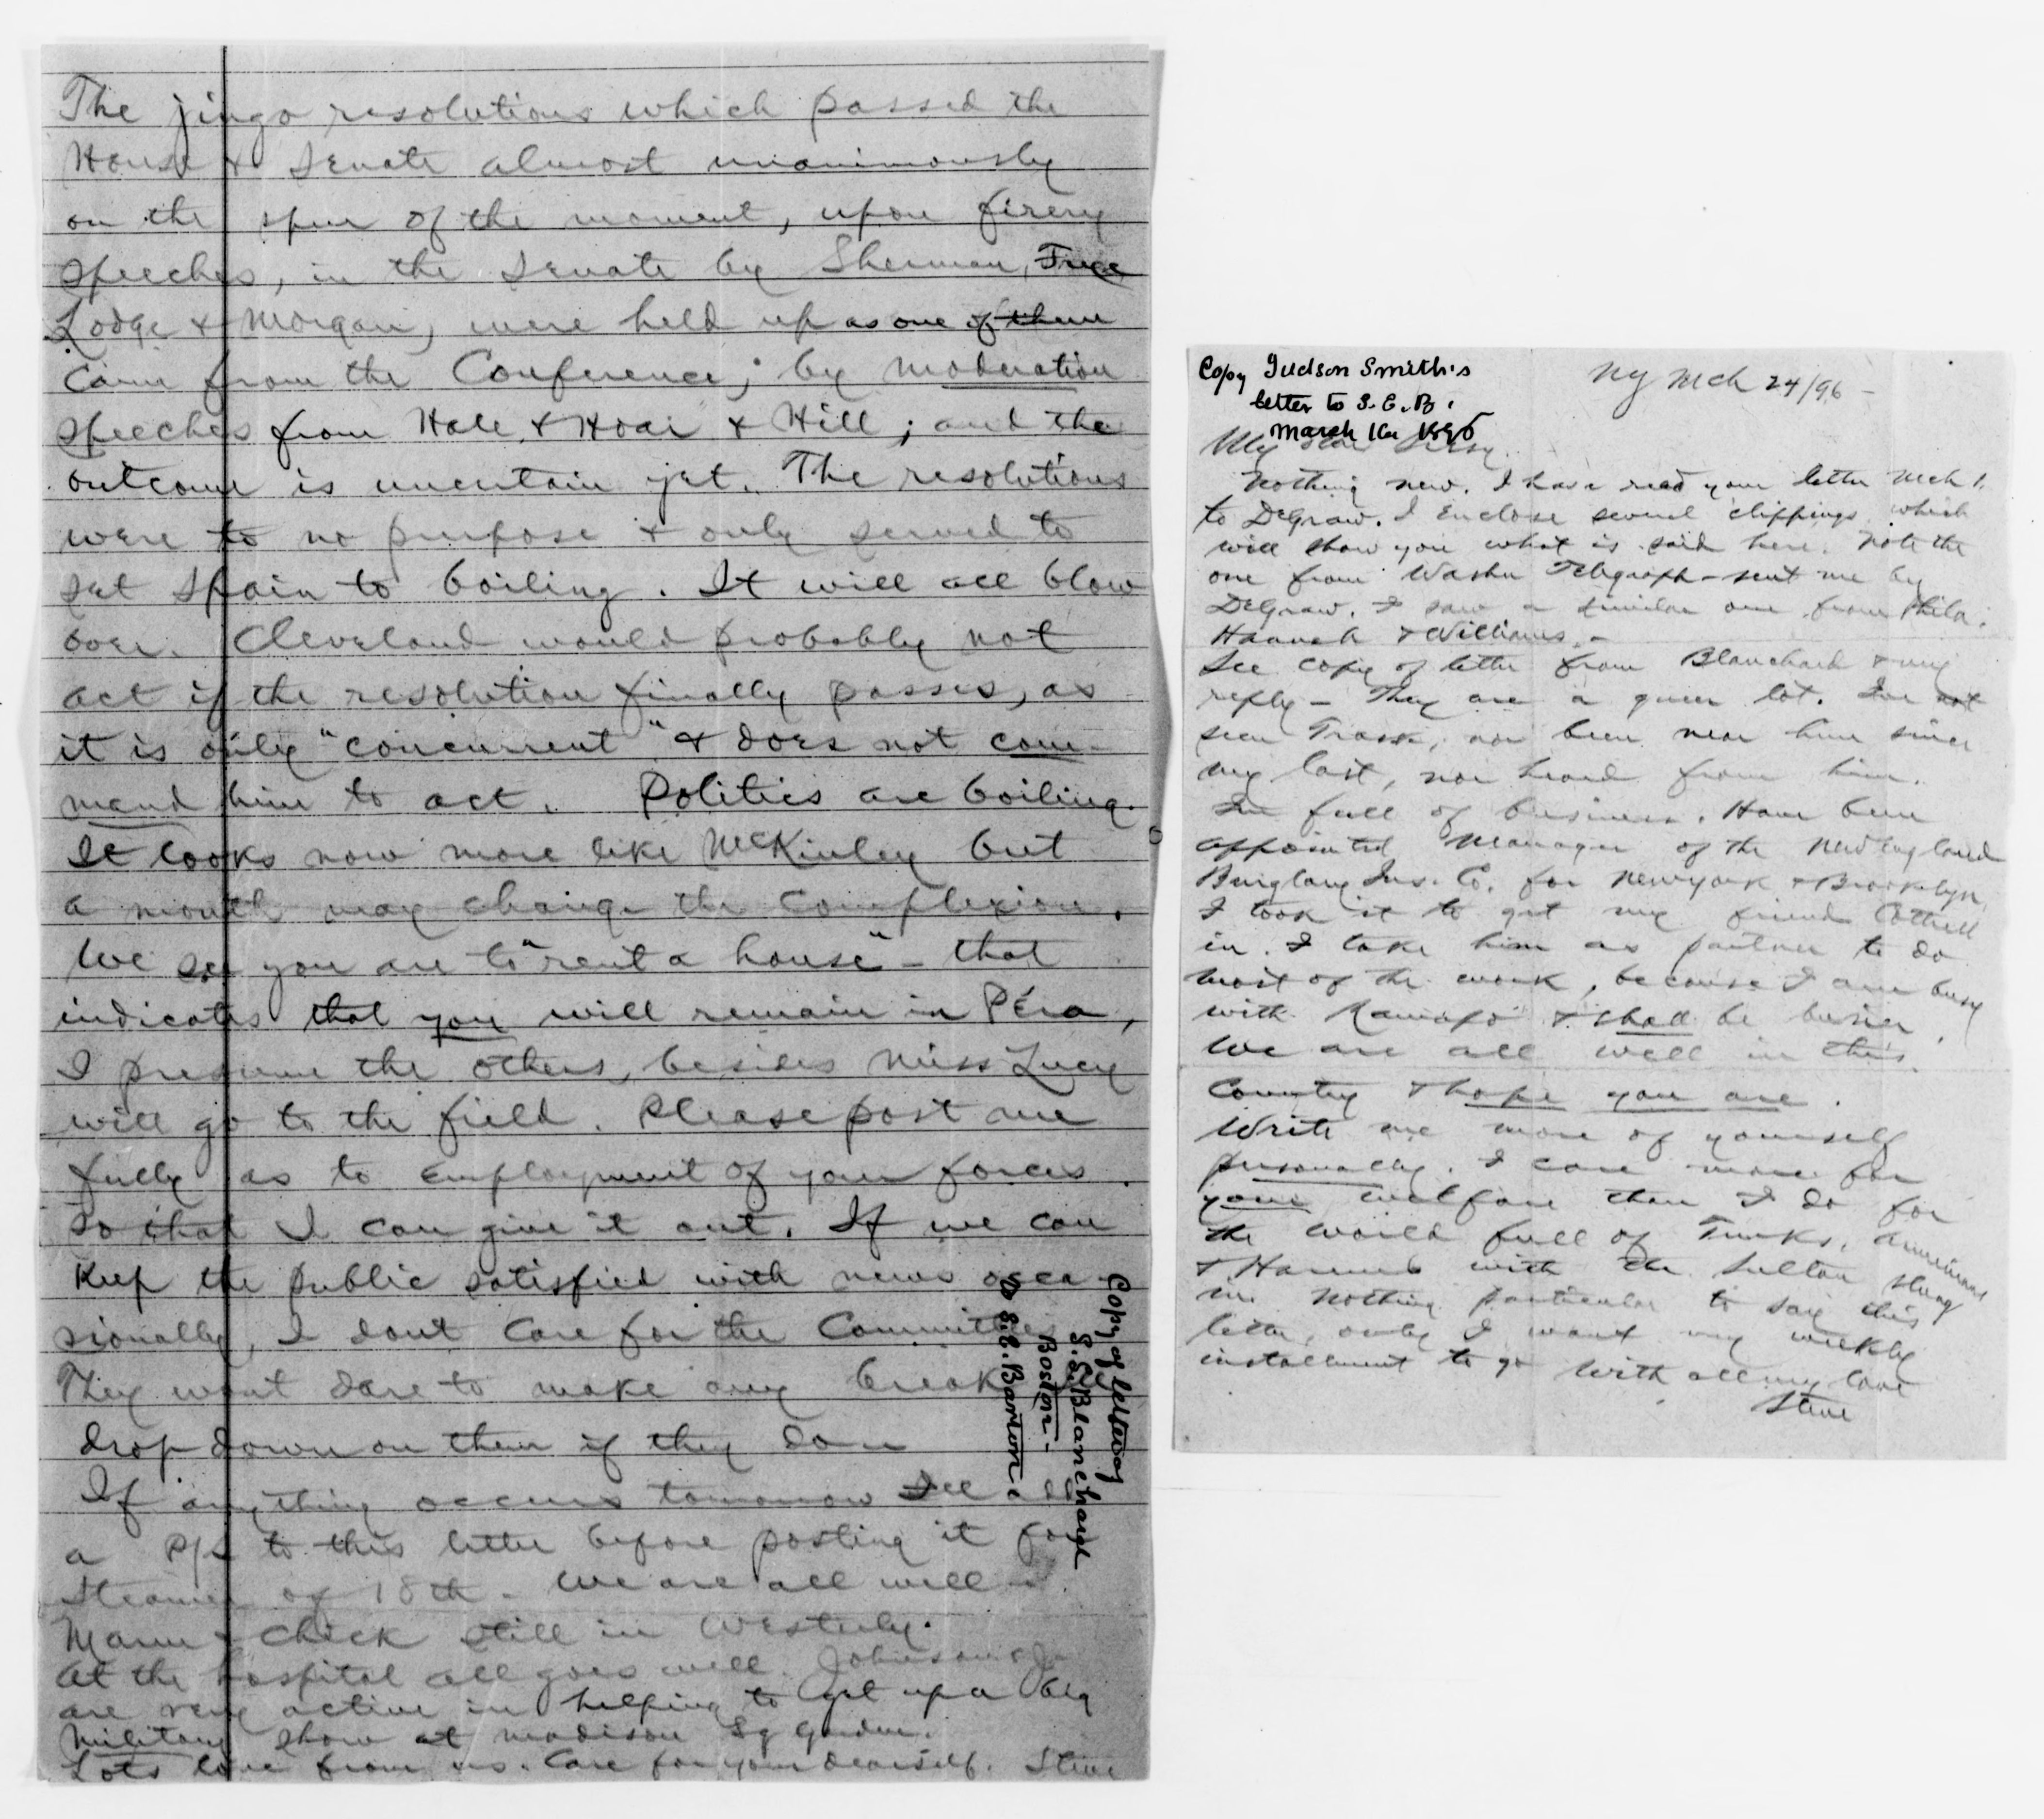 The jingo resolutions which passed the
House & Senate almost unanimously
on the spur of the moment, upon firery
speeches, in the Senate by Sherman, Frye
Lodge & Morgan, were held up as one of them
came from the Conference; by moderation
speeches from Hale & Hoar & Hill; and the
outcome is uncertain yet. The resolutions
were to no purpose & only served to
set Spain to boiling. It will all blow
over. Cleveland would probably not
act if the resolution finally passes, as
it is only "concurrent" & does not com-
mand him to act. Politics are boiling.
It looks now more like McKinley but
a month may change the complexion.
We see you are to "rent a house" - that
indicates that you will remain in Péra,
I presume the others, besides Miss Lucy
will go to the field. Please post me
fully as to employment of your forces.
so that I can give it out. If we can
keep the public satisfied with news occa-
sionally, I dont care for the Committees
They wont dare to make any break
drop down on them if they do
If anything occurs tomorrow I'll add
a P/S to this letter before posting it for
Steamer of 18th - We are all well -
Mamie & Chick still in Westerly.
At the hospital all goes well. Johnson
are very active in helping to get up a big
military show at Madison Sq Garden.
Lots love from us. Care for your dearself. Steve
Copy of letter of
S. S. Blanchard
Boston -
to S. E. Barton.
Copy Judson Smith's
letter to S. E. B.
March 16 1896
NY Mch 24/96 -
My dear
Nothing new. I have read your letter Mch 1.
to DeGraw. I enclose several clippings which
will show you what is said here. Note the
one from Washn Telegraph - sent me by
DeGraw. I saw a similar one from Phila.
Hannah & Williams. -
See copy of letter from Blanchard & my
reply - They are a queer lot. I've not
seen Trask, nor been near him since
my last, nor heard from him.
I'm full of business. Have been
appointed Manager of the New England
Burglary Ins. Co. for New York & Brooklyn,
I took it to get my friend Cottrell
in. I take him as partner to do
most of the work, because I am busy
with Ramapo & shall be busier.
We are all well in this
Country & hope you are.
Write me more of yourself
personally. I care more for
your welfare than I do for
the world full of Turks, Armenians
& Harems with the Sultan
in. Nothing particular to say this
letter, only I want my weekly
installment to go with all my love
Steve